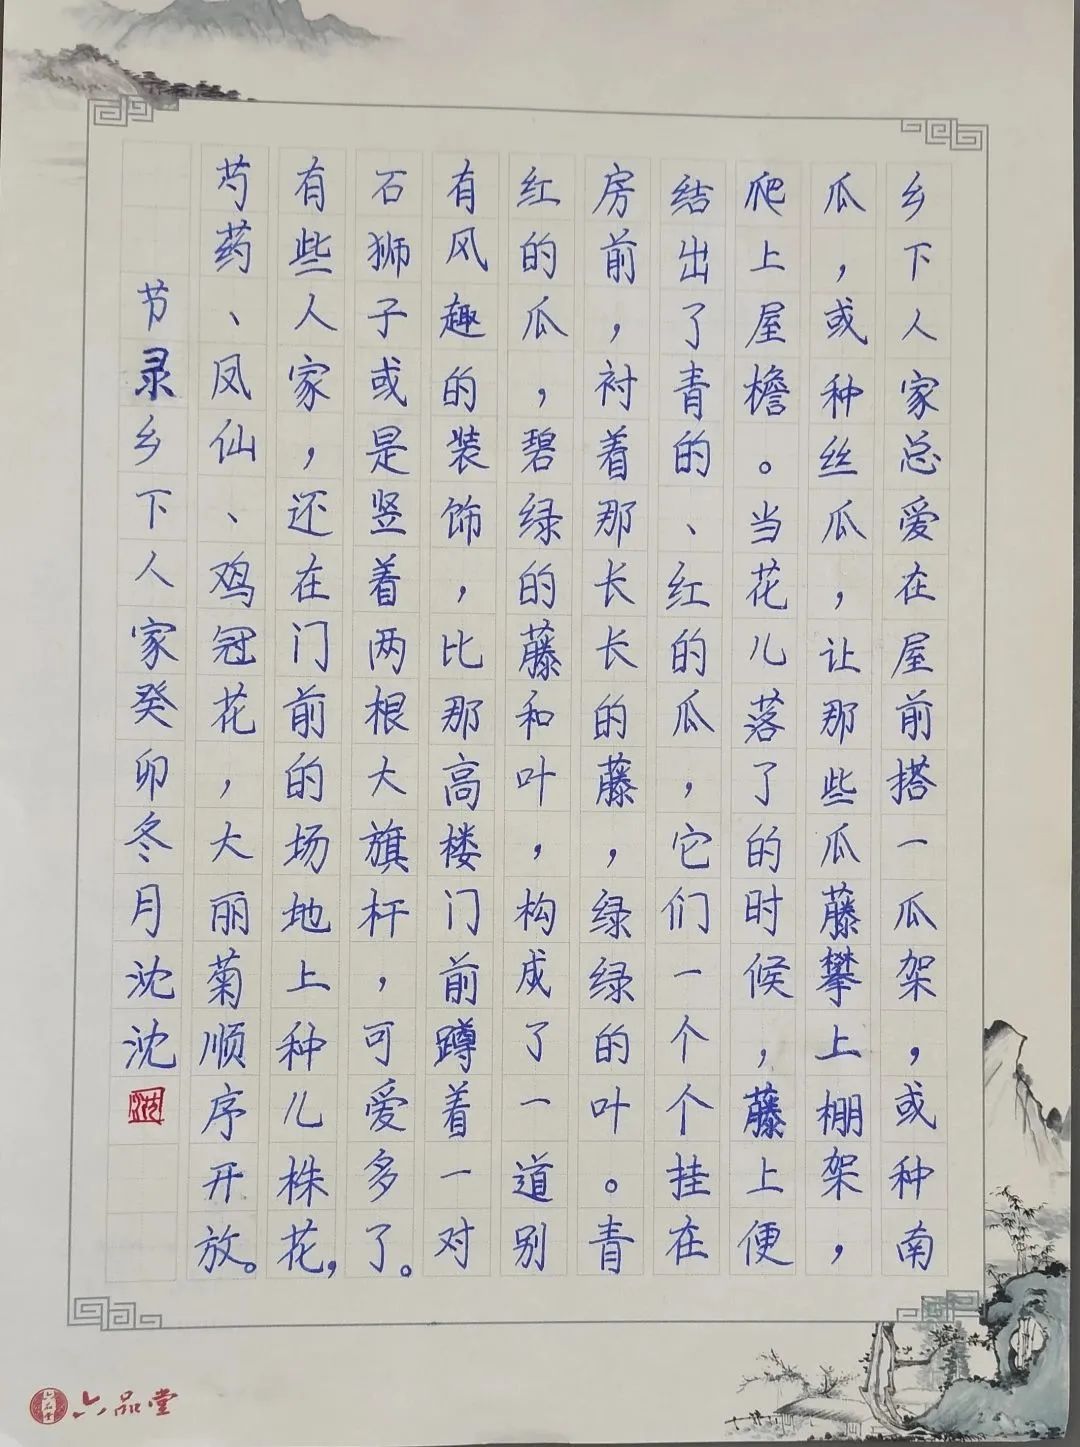 乡下人家总爱在屋前搭一瓜架,或种南
瓜,或种丝瓜,让那些瓜藤攀上棚架,
爬上屋檐。当花儿落了的时候,藤上便
结出了青的、红的瓜,它们一个个挂在
房前,衬着那长长的藤,绿绿的叶。青
红的瓜,碧绿的藤和叶,构成了一道别
有风趣的装饰,比那高楼门前蹲着一对
石狮子或是竖着两根大旗杆,可爱多了。
有些人家,还在门前的场地上种几株花,
芍药、凤仙、鸡冠花,大丽菊顺序开放。
节录乡下人家癸卯冬月沈沈
六品堂